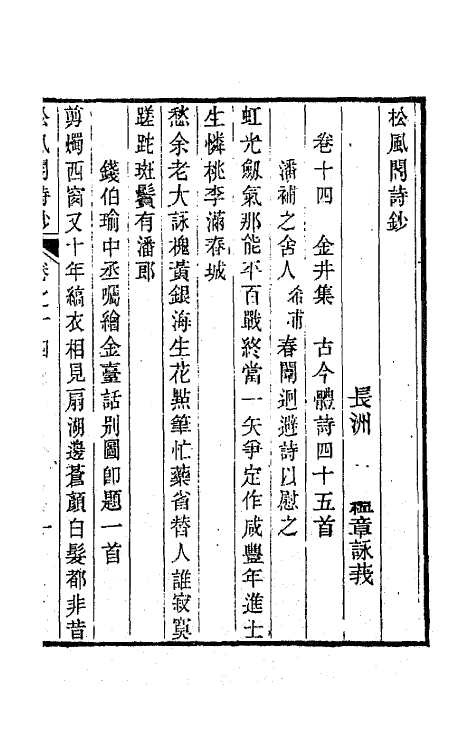 松風閣詩鈔
長洲　韞章詠莪
卷十四　金井集　古今體詩四十五首
潘補之舍人希甫春闈迴避詩以慰之
虹光劒氣那能平百戰終當一矢爭定作咸豐年進士
生憐桃李滿春城
愁余老大詠槐黃銀海生花點筆忙藥省替人誰寂寞
蹉跎斑鬢有潘郎
錢伯瑜中丞囑繪金臺話别圖卽題一首
剪燭西窗又十年縞衣相見一扇湖邊蒼顏白髮都非昔
松風閣詩鈔　卷之十四　一